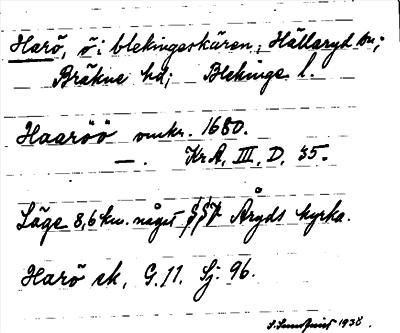 Harö, ö i blekingeskären, Hällaryd sn;
Bräkne hd; Blekinge l.
Haaröö omkr. 1680.
—. Kr.A, III, D, 35.
Läge 8,6 km. något SSV Åryds kyrka.
Harö ek, G. 11. Sj. 96.
S. Sundqvist 1938.